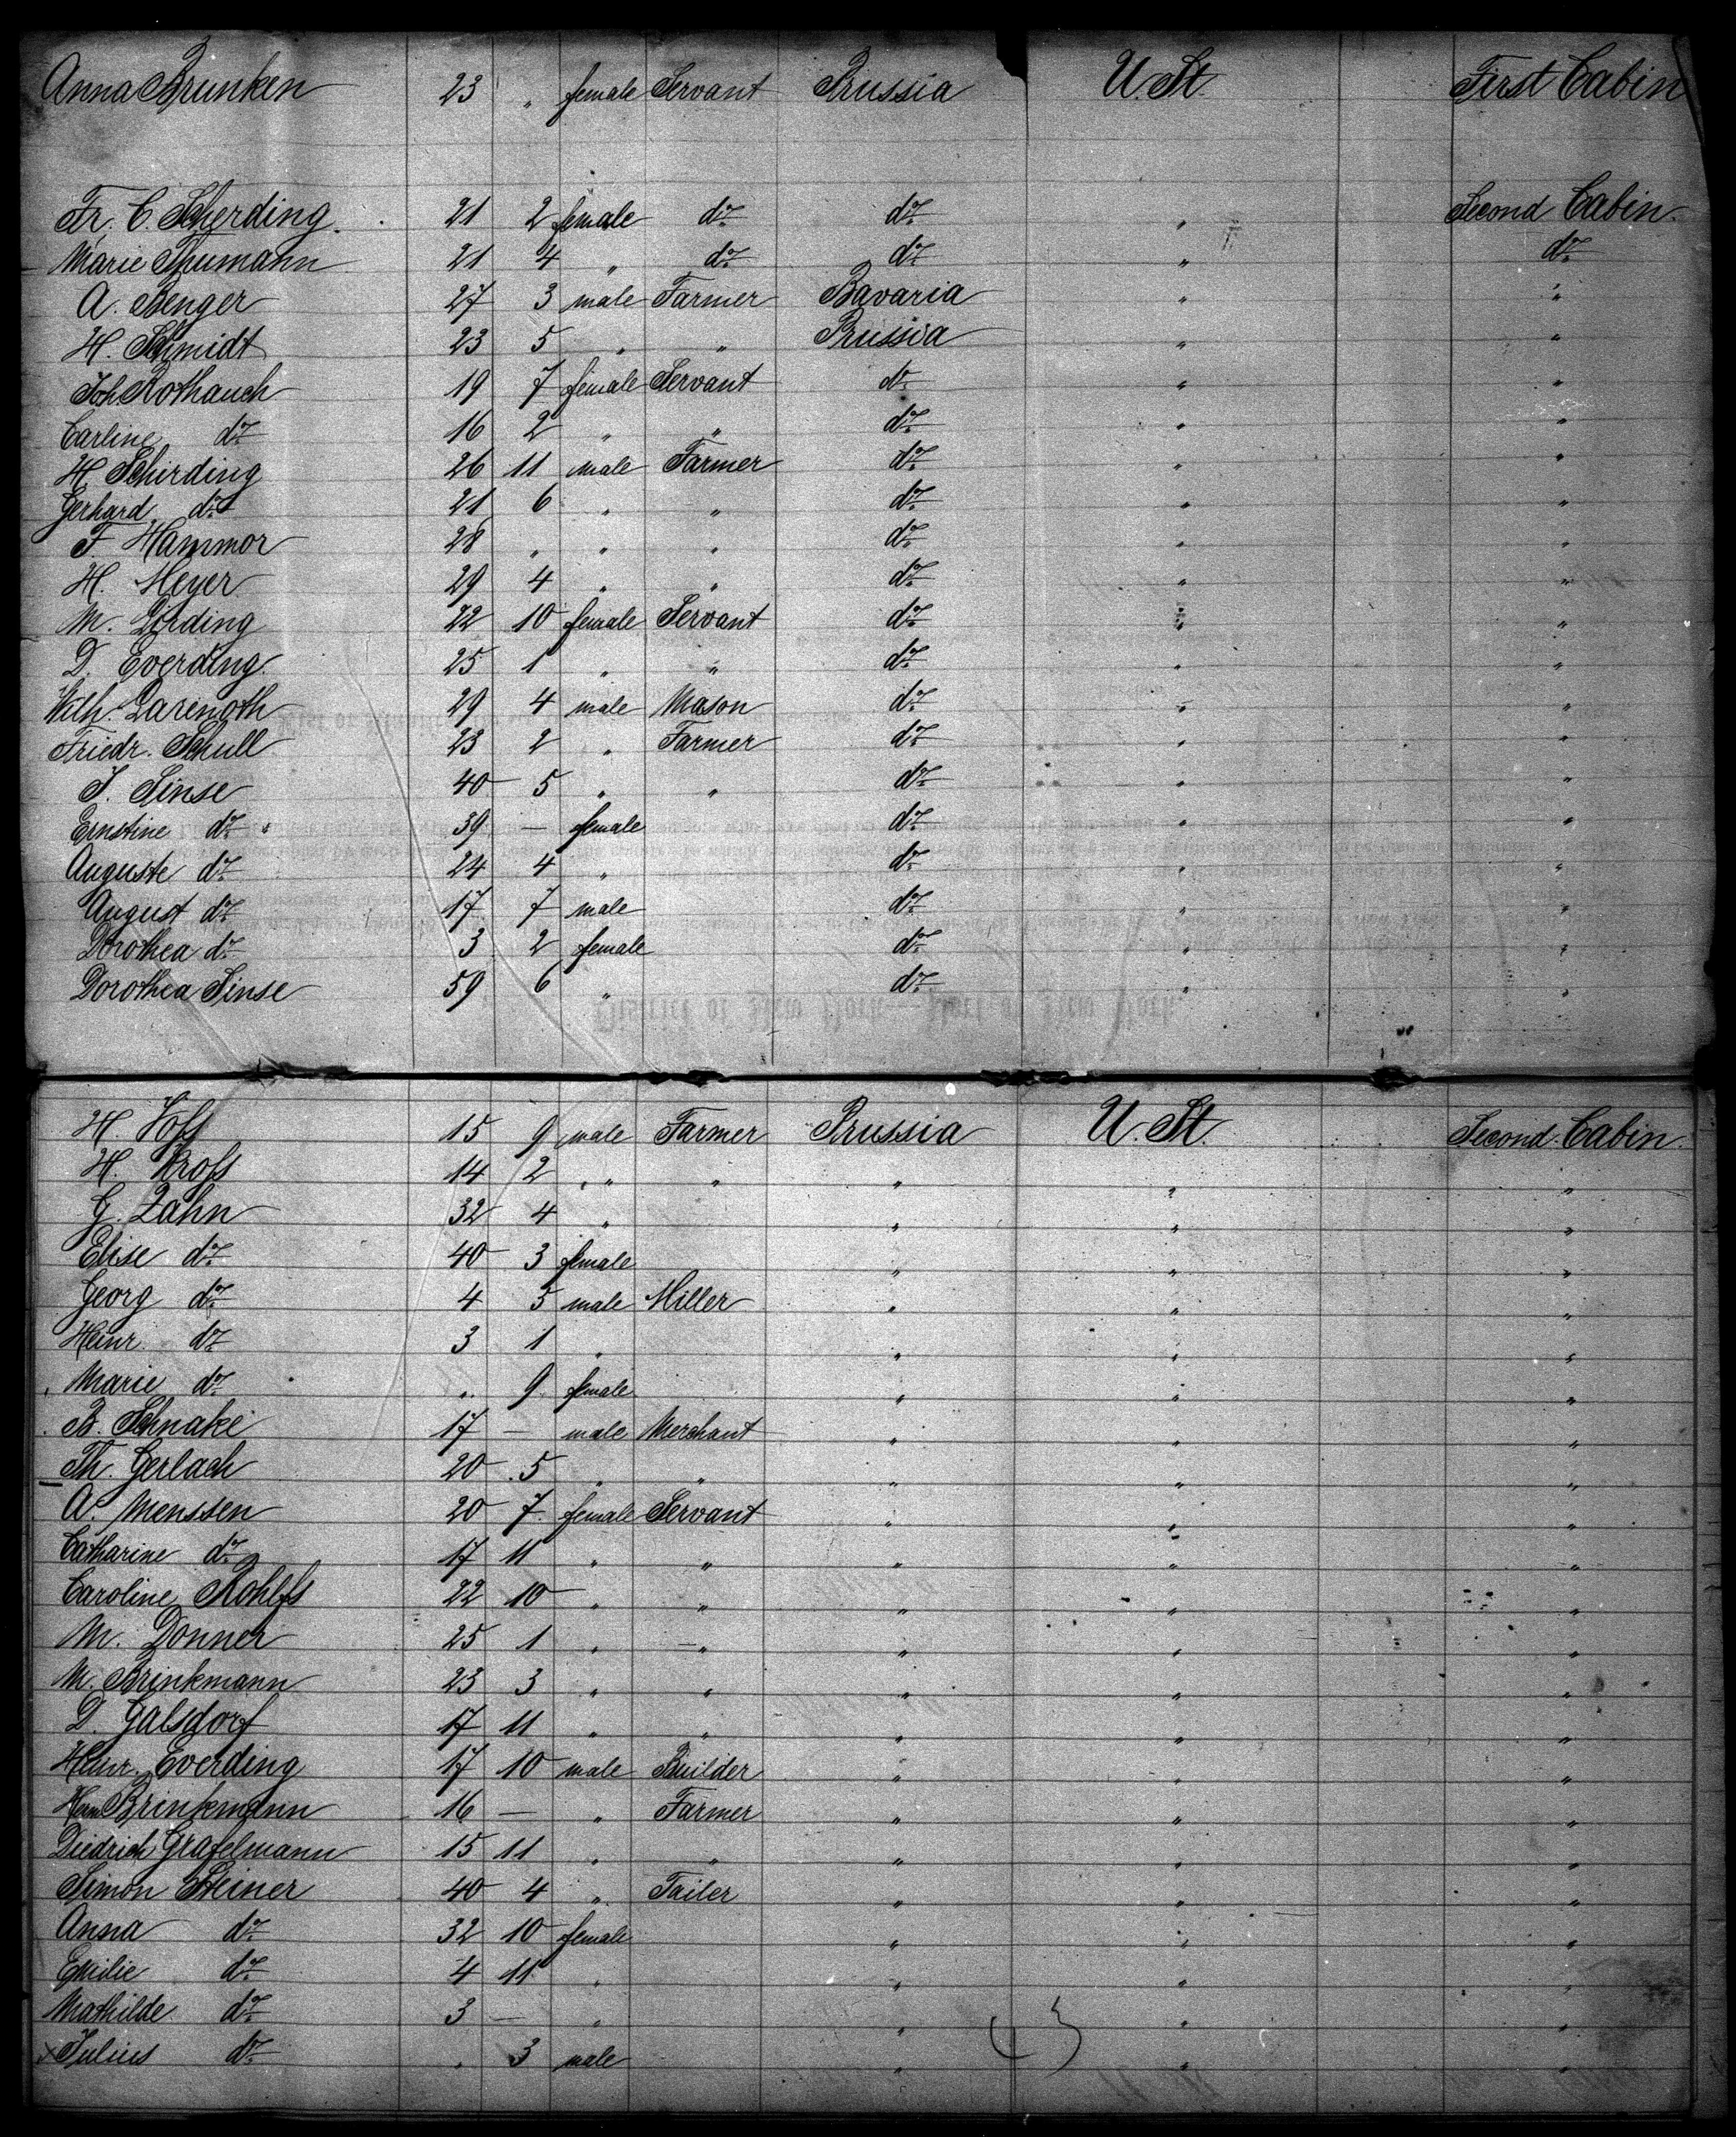 Anna Brunken 23 " female Servant Prussia U. St. First Cabin
Fr. C. Scherding 21 2 female do. do. " Second Cabin.
Marie Thumann 21 4 " do. do. " do.
A. Benger 27 3 male Farmer Bavaria " "
H. Schmidt 23 5 " " Prussia " "
Joh. Rothauch 19 7 female Servant do. " "
Carline do. 16 2 " " do. " "
H. Schirding 26 11 male Farmer do. " "
Gerhard do. 21 6 " " do. " "
F. Hammor 28 " " " do. " "
H. Meyer 29 4 " " do. " "
M. 22 10 female Servant do. " "
D. Everding 25 1 " " do. " "
Wilh. Garenoth 29 4 male Mason do. " "
Friedr. Schull 23 2 " Farmer do. " "
J. Sinse 40 5 " " do. " "
Ernstine do. 39 — female do. " "
Auguste do. 24 4 " do. " "
August do. 17 7 male do. " "
Dorothea do. 3 2 female do. " "
Dorothea Sinse 59 6 " do. " "
H. Voß 15 9 male Farmer Prussia U. St. Second Cabin.
H. Kroß 14 2 " " " " "
G. Zahn 32 4 " " " "
Elise do. 40 3 female " " "
Georg do. 4 5 male Miller " " "
Heinr. do. 3 1 " " " "
Marie do. " 9 female " " "
B. Schnake 17 — male Merchant " " "
Th. Gerlach 20 5 " " " " "
A. Menssen 20 7 female Servant " " "
Catharine do. 17 11 " " " " "
Caroline Rohlfs 22 10 " " " " "
M. Donner 25 1 " " " " "
M. Brinkmann 23 3 " " " " "
D. Galsdorf 17 11 " " " " "
Heinr. Everding 17 10 male Builder " " "
Herm Brinkmann 16 — " Farmer " " "
Diedrich Grafelmann 15 11 " " " " "
Simon Steiner 40 4 " Tailer " " "
Anna do. 32 10 female " " "
Emilie do. 4 11 " " " "
Mathilde do. 3 — " " " "
Julius do. " 3 male " " "